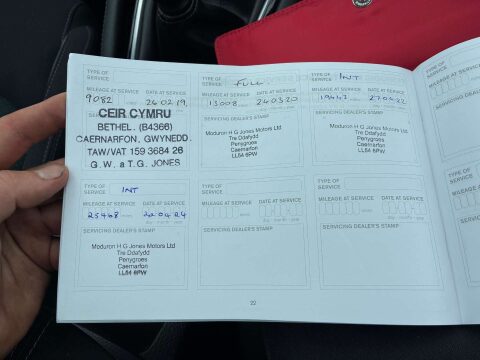 TYPE OF SERVICE
MILEAGE AT SERVICE DATE AT SERVICE
9082 26.02.19
CEIR CYMRU
BETHEL. (B4366)
CAERNARFON, GWYNEDD.
TAW/VAT 159 3684 28
G.W. a T.G. JONES
TYPE OF SERVICE FULL
MILEAGE AT SERVICE DATE AT SERVICE
13008 miles 24.03.20
day month year
SERVICING DEALER'S STAMP
Moduron H G Jones Motors Ltd
Tre Ddafydd
Penygroes
Caernarfon
LL54 6PW
TYPE OF SERVICE INT
MILEAGE AT SERVICE DATE AT SERVICE
miles
day month year
SERVICING DEALER'S STAMP
Moduron H G Jones Motors Ltd
Tre Ddafydd
Penygroes
Caernarfon
LL54 6PW
TYPE OF SERVICE
MILEAGE AT SERVICE
SERVICING
TYPE OF SERVICE INT
MILEAGE AT SERVICE DATE AT SERVICE
25468 miles 22.04.24
day month year
SERVICING DEALER'S STAMP
Moduron H G Jones Motors Ltd
Tre Ddafydd
Penygroes
Caernarfon
LL54 6PW
TYPE OF SERVICE
MILEAGE AT SERVICE DATE AT SERVICE
miles
day month year
SERVICING DEALER'S STAMP
TYPE OF SERVICE
MILEAGE AT SERVICE DATE AT SERVICE
miles
day month year
SERVICING DEALER'S STAMP
TYPE OF SERVICE
MILEAGE AT
SERVICING
22